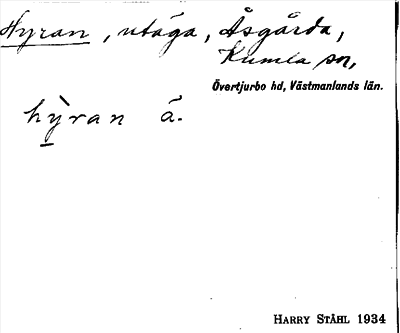 Hyran, utäga, Åsgårda,
Kumla sn,
Övertjurbo hd, Västmanlands län.
hỳran ā.
HARRY STÅHL 1934